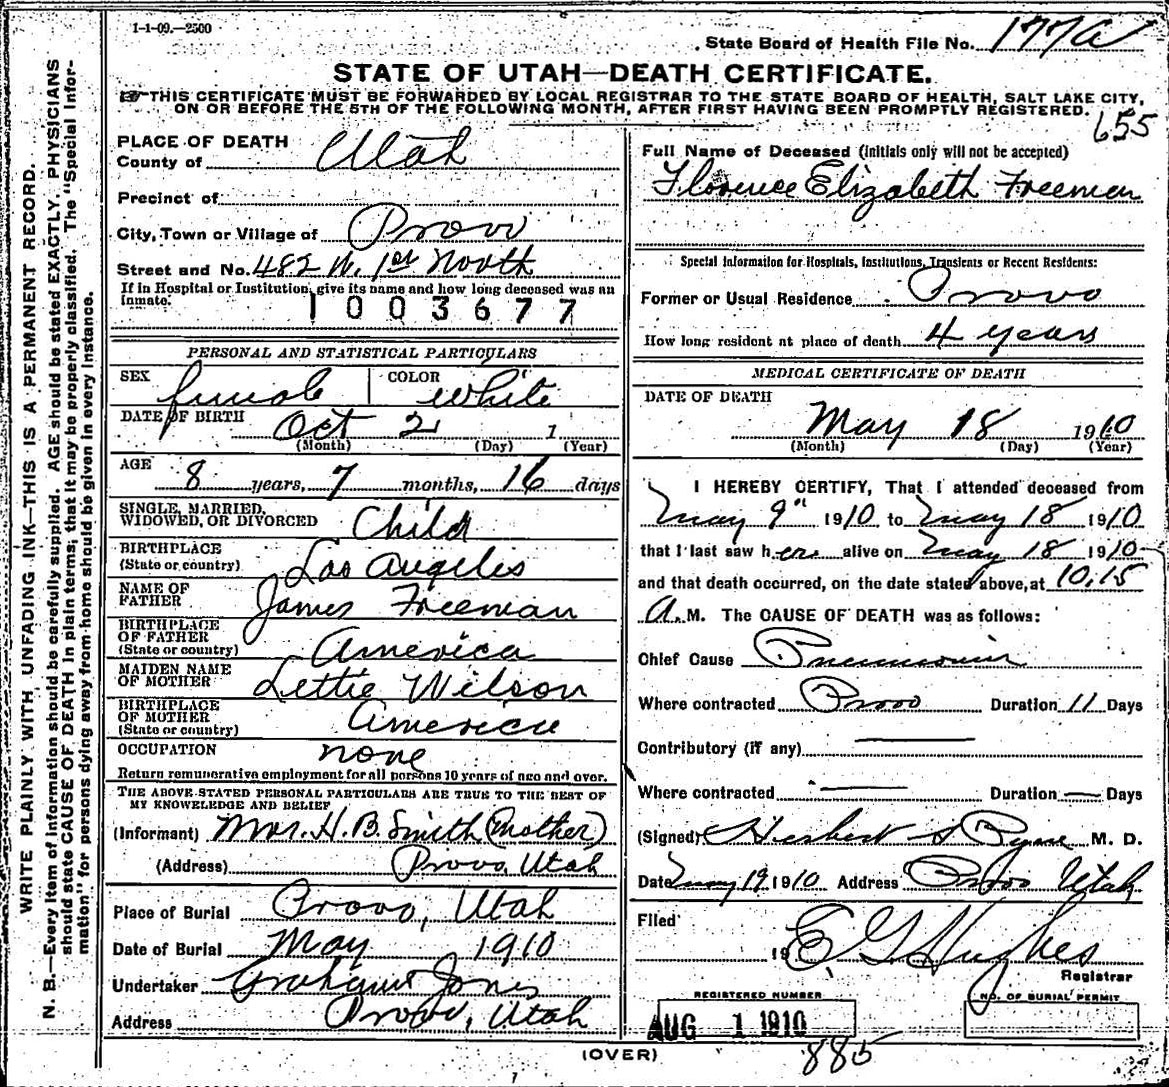 1-1-09.—2500
State Board of Health File No. 177a
STATE OF UTAH—DEATH CERTIFICATE.
THIS CERTIFICATE MUST BE FORWARDED BY LOCAL REGISTRAR TO THE STATE BOARD OF HEALTH, SALT LAKE CITY,
ON OR BEFORE THE 5TH OF THE FOLLOWING MONTH, AFTER FIRST HAVING BEEN PROMPTLY REGISTERED.
655
WRITE PLAINLY WITH UNFADING INK—THIS IS A PERMANENT RECORD.
N. B.—Every item of information should be carefully supplied. AGE should be stated EXACTLY. PHYSICIANS
should state CAUSE OF DEATH in plain terms, that it may be properly classified. The "Special Infor-
mation" for persons dying away from home should be given in every instance.
PLACE OF DEATH
County of Utah
Precinct of
City, Town or Village of Provo
Street and No. 482 W. 1st North
If in Hospital or Institution, give its name and how long deceased was an
inmate.
1003677
PERSONAL AND STATISTICAL PARTICULARS
SEX female COLOR white
DATE OF BIRTH Oct 2 1
(Month) (Day) (Year)
AGE 8 years, 7 months, 16 days
SINGLE, MARRIED,
WIDOWED, OR DIVORCED Child
BIRTHPLACE
(State or country) Los Angeles
NAME OF
FATHER James Freeman
BIRTHPLACE
OF FATHER
(State or country) America
MAIDEN NAME
OF MOTHER Lettie Wilson
BIRTHPLACE
OF MOTHER
(State or country) America
OCCUPATION none
Return remunerative employment for all persons 10 years of age and over.
THE ABOVE STATED PERSONAL PARTICULARS ARE TRUE TO THE BEST OF
MY KNOWLEDGE AND BELIEF
(Informant) Mrs. H. B. Smith (Mother)
(Address) Provo, Utah
Place of Burial Provo, Utah
Date of Burial May 1910
Undertaker Jones
Address Provo, Utah
Full Name of Deceased (initials only will not be accepted)
Florence Elizabeth Freeman
Special Information for Hospitals, Institutions, Transients or Recent Residents:
Former or Usual Residence Provo
How long resident at place of death 4 years
MEDICAL CERTIFICATE OF DEATH
DATE OF DEATH
May 18 1910
(Month) (Day) (Year)
I HEREBY CERTIFY, That I attended deceased from
May 9th 1910 to May 18 1910
that I last saw her alive on May 18 1910
and that death occurred, on the date stated above, at 10:15
A. M. The CAUSE OF DEATH was as follows:
Chief Cause Pneumonia
Where contracted Provo Duration 11 Days
Contributory (if any) —
Where contracted — Duration — Days
(Signed) Herbert S Pyne M. D.
Date May 19 1910 Address Provo Utah
Filed
19 E G Hughes
Registrar
REGISTERED NUMBER
NO. OF BURIAL PERMIT
AUG 1 1910
885
(OVER)